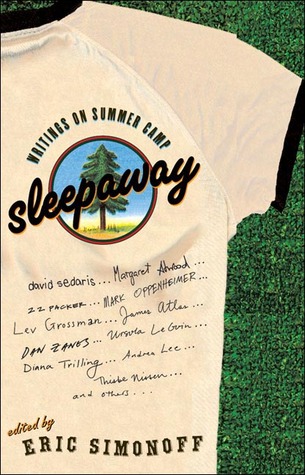 WRITINGS ON SUMMER CAMP
sleepaway
david sedaris... Margaret Atwood...
ZZ PACKER... MARK OPPENHEIMER...
Lev Grossman... James Atlas...
DAN ZANES... Ursula LeGuin...
Diana Trilling... Andrea Lee...
Thisbe Nissen...
and others...
edited by
ERIC SIMONOFF